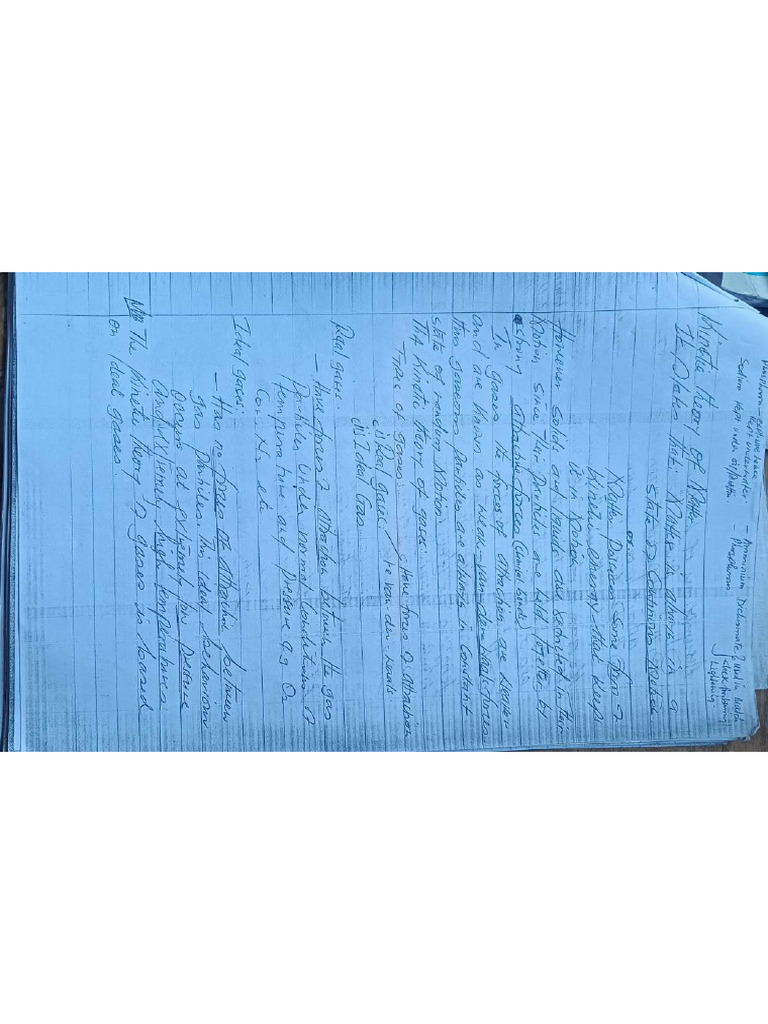 Phosphorous - explosive hence
kept underwater
Sodium kept under oil/paraffin
- Ammonium Dichromate } used in match
Phosphorus
Lightning
Kinetic Theory of Matter
It states that: Matter is always in a
state of continuous motion
or
Matter possesses some form of
kinetic energy that keeps
it in motion
However solids and liquids are restricted in their
motion since their particles are held together by
strong attractive forces (chemical bonds)
In gases the forces of attraction are weaker
and are known as weak van-der-waals forces
thus gaseous particles are always in constant
state of random motion.
The kinetic theory of gases.
Types of gases.
i) Real gases
- Have forces of attraction
ie van-der-waals
ii) Ideal Gas
Real gases.
- Have forces of attraction between the gas
particles under normal conditions of
temperature and pressure e.g O2
CO2 N2 etc
Ideal gases:
- Has no forces of attraction between
gas particles. This ideal behaviour
occurs at extremely low pressure
and extremely high temperatures.
The kinetic theory of gases is based
on ideal gases.